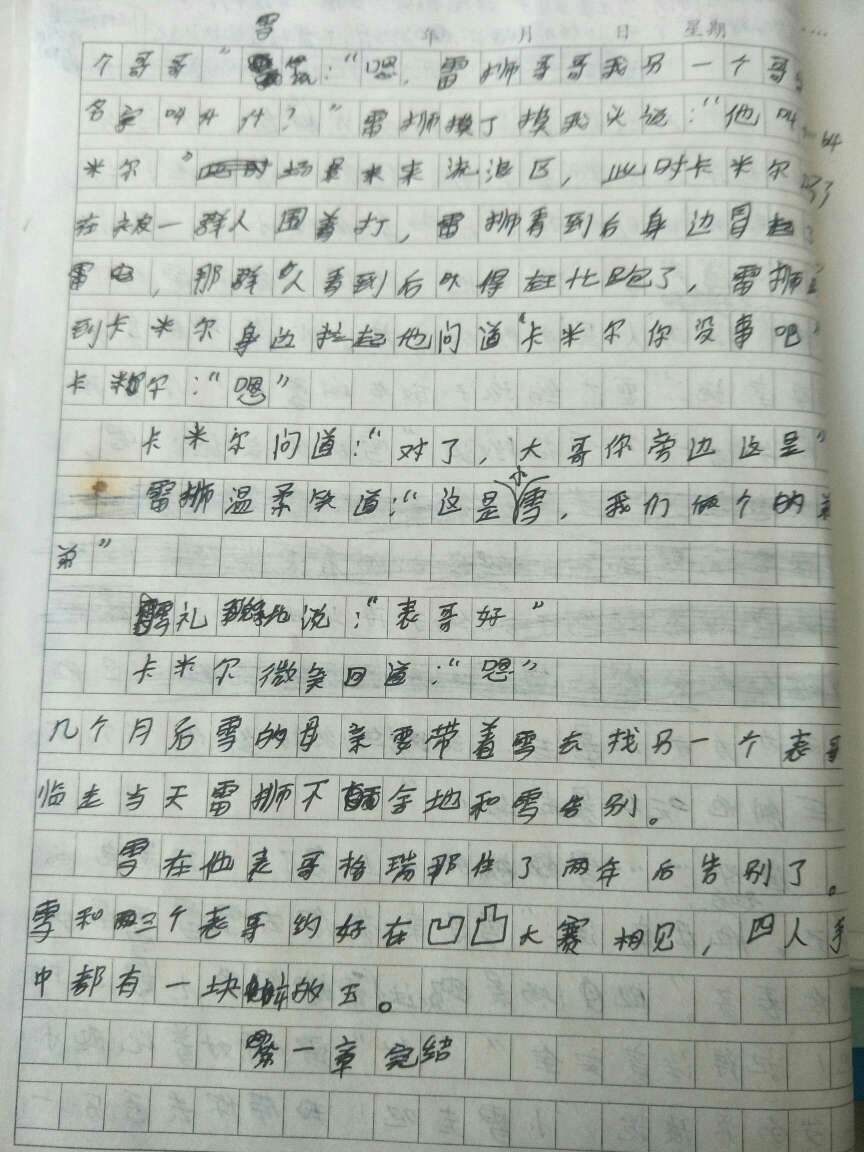 年 月 日 星期
雪
个哥哥”雪笑：“嗯，雷狮哥哥我另一个哥
名字叫什什？”雷狮摸了摸我头说：“他叫
米尔”场景来来流浪区，此时卡米尔
在被一群人围着打，雷狮看到后身边冒起
雷电，那群人看到后吓得赶忙跑了，雷狮
到卡米尔身边拉起他问道“卡米尔你没事吧”
卡米尔：“嗯”
卡米尔问道：“对了，大哥你旁边这是”
雷狮温柔笑道：“这是小雪，我们做个的弟
弟”
礼地说：“表哥好”
卡米尔微笑回道：“嗯”
几个月后雪的母亲要带着雪去找另一个表哥
临走当天雷狮不舍地和雪告别。
雪在他表哥格瑞那住了两年后告别了。
雪和三个表哥约好在凹凸大赛相见，四人手
中都有一块碎的玉。
第一章完结